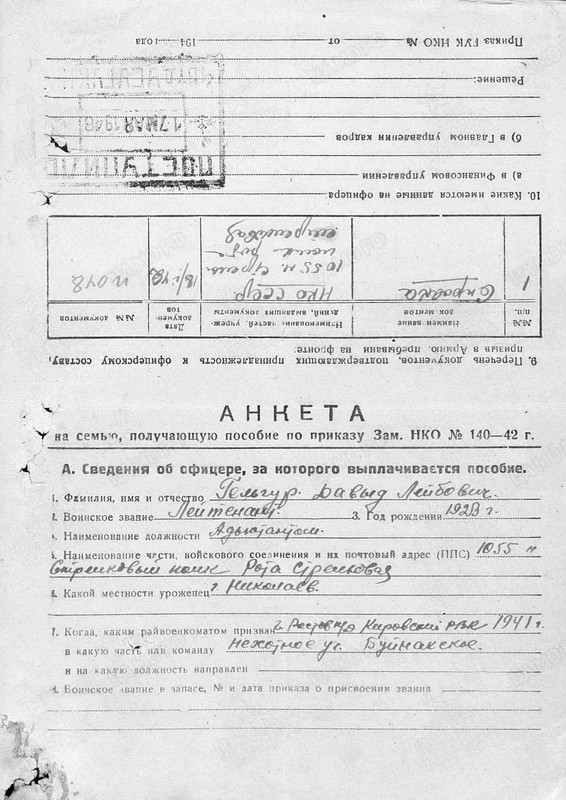 АНКЕТА
на семью, получающую пособие по приказу Зам. НКО № 140—42 г.
А. Сведения об офицере, за которого выплачивается пособие.
1. Фамилия, имя и отчество Гельгур Давыд Лейбович.
2. Воинское звание Лейтенант. 3. Год рождения 1923 г.
4. Наименование должности Адьютантом.
5. Наименование части, войскового соединения и их почтовый адрес (ППС) 1055 й
Стрелковый полк Рота стрелковая
6. Какой местности уроженец г. Николаев.
7. Когда, каким райвоенкоматом призван г. Ростов н/Д Кировский РВК 1941 г.
в какую часть или команду Пехотное уч. Буйнакское.
и на какую должность направлен
8. Воинское звание в запасе, № и дата приказа о присвоении звания
9. Перечень документов, подтверждающих принадлежность к офицерскому составу,
призыв в Армию, пребывании на фронте:
№№ п.п. Наименование док ментов Наименование частей, учреждений, выдавших документы Дата документов №№ документов
1 Справка НКО СССР 1055 й стрел. полк рота стрелковая 18/I 43 № 048
10. Какие имеются данные на офицера
а) в Финансовом управлении
б) в Главном управлении кадров
ПОСТУПИЛО
17 МАЯ 1946
Решение:
Приказ ГУК НКО № от 194 года